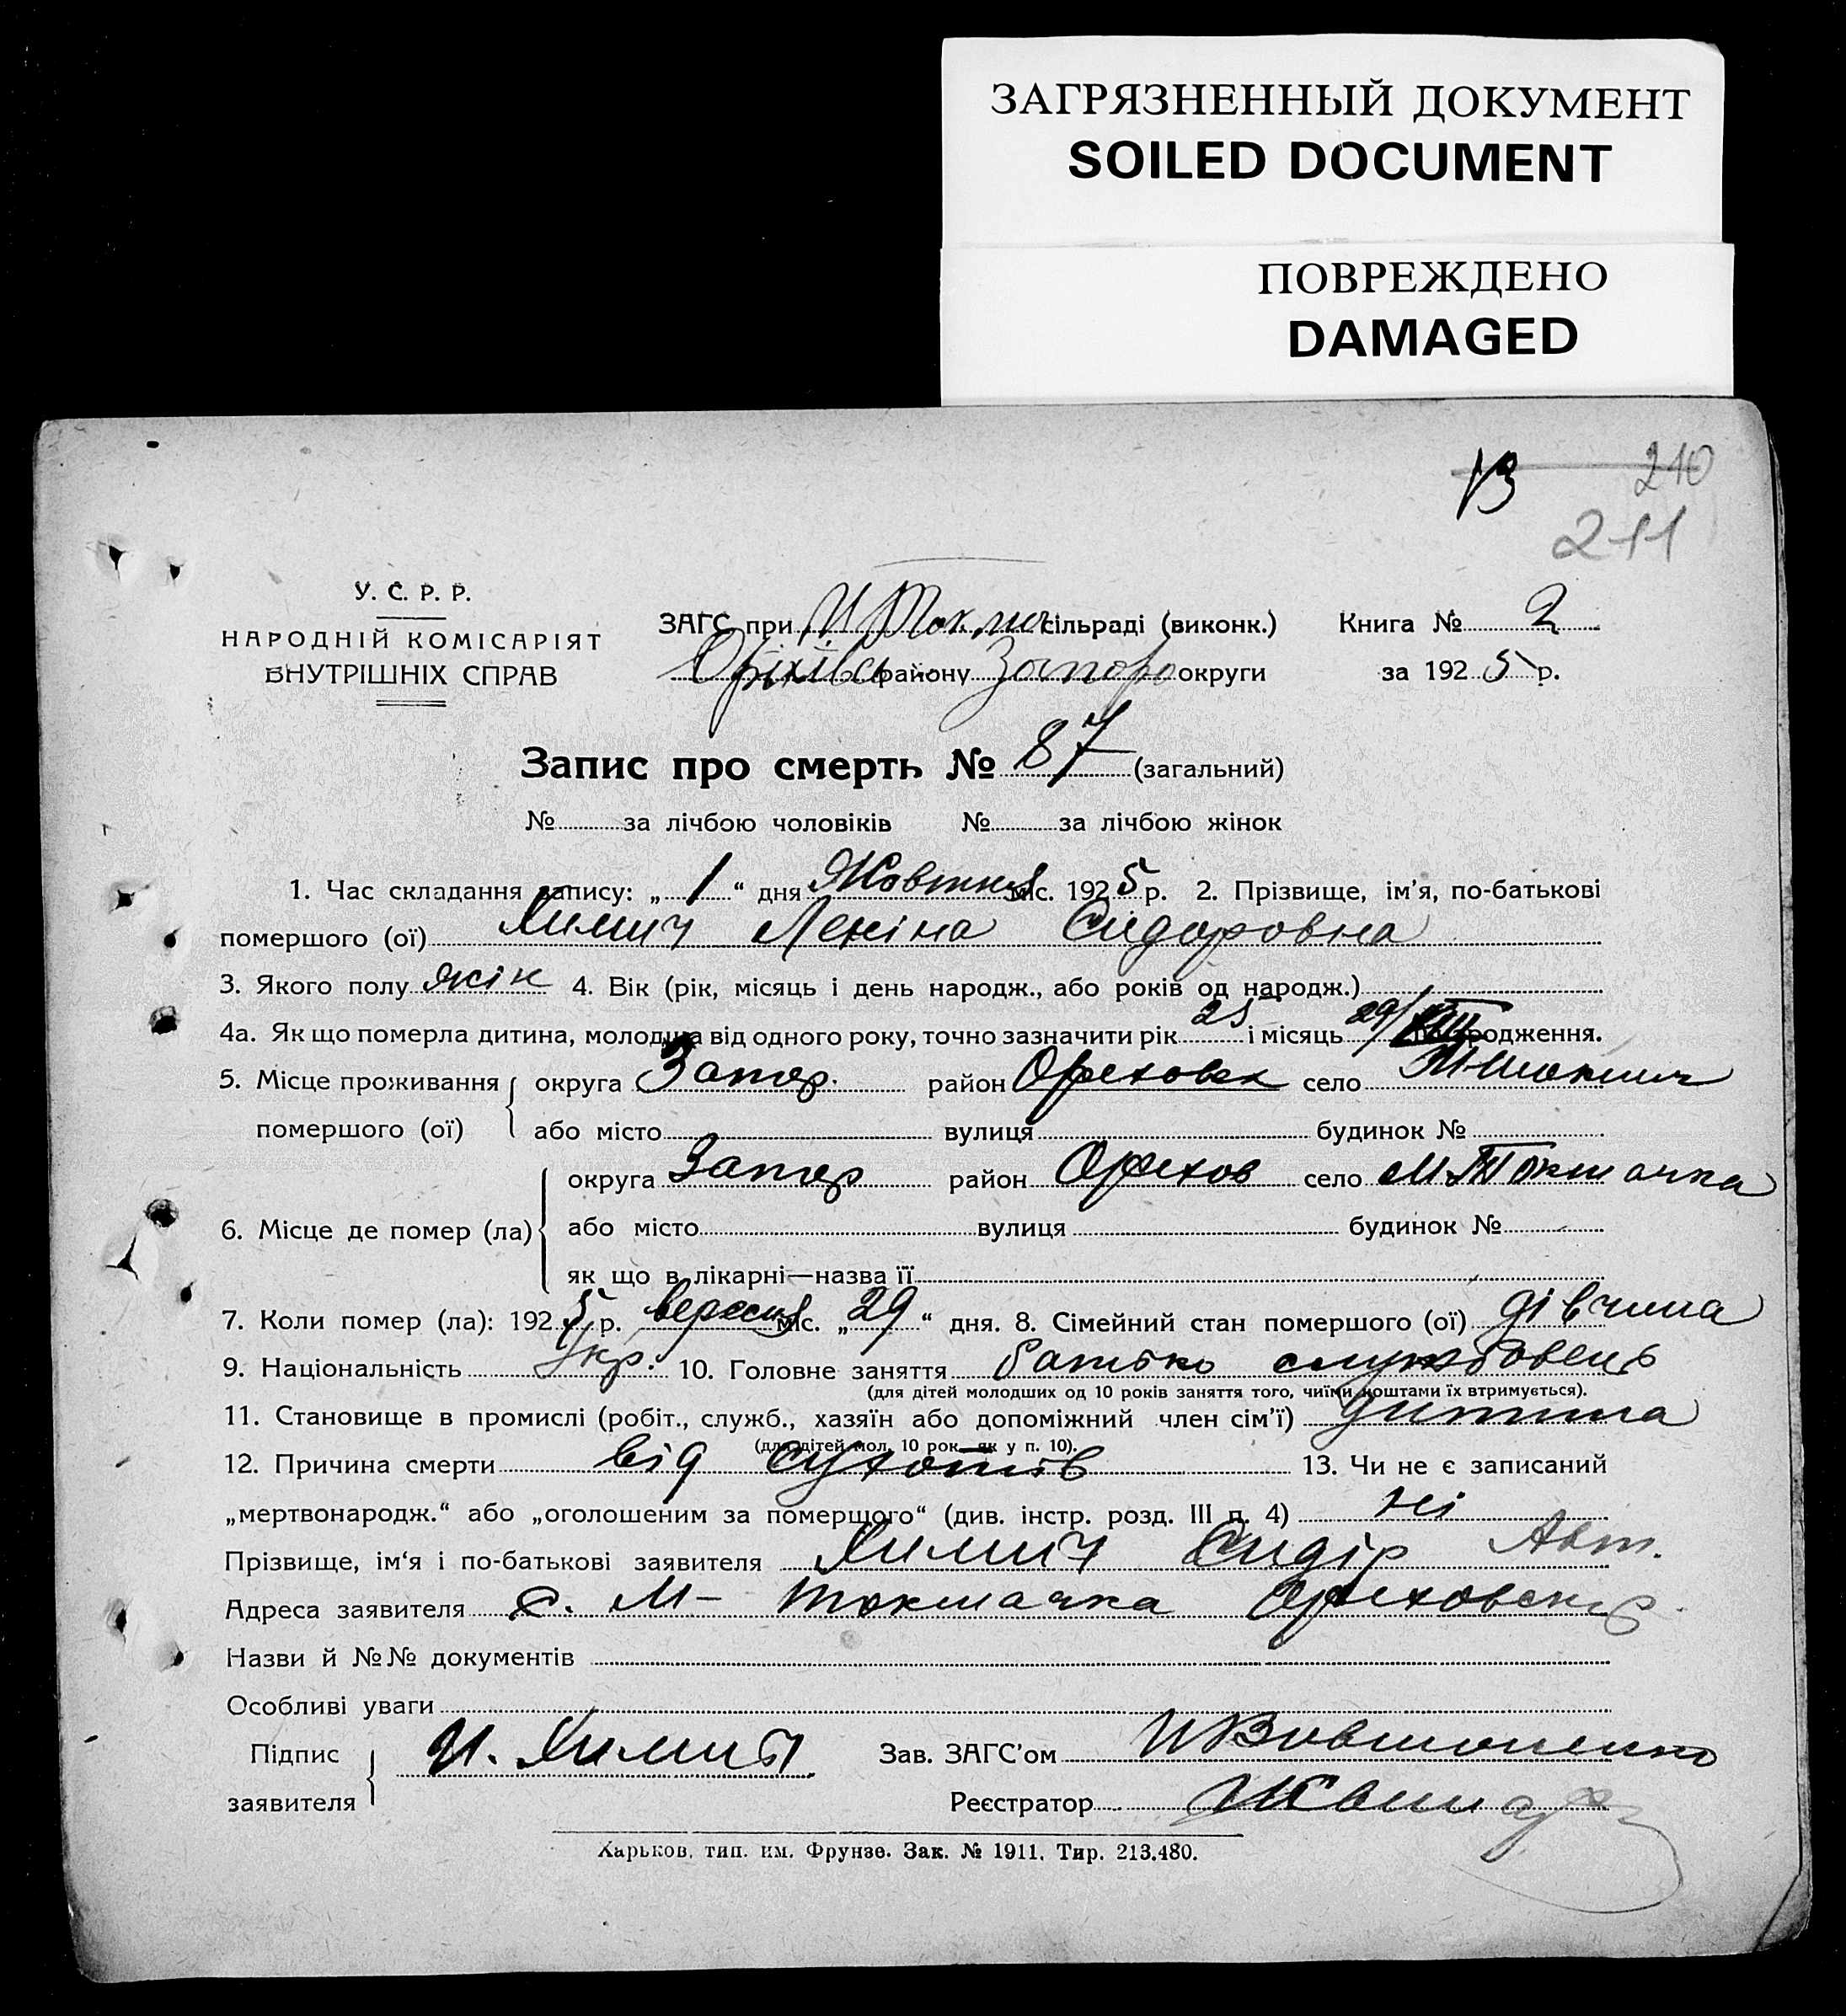 ЗАГРЯЗНЕННЫЙ ДОКУМЕНТ
SOILED DOCUMENT
ПОВРЕЖДЕНО
DAMAGED
13 210
211
У. С. Р. Р.
НАРОДНІЙ КОМІСАРІЯТ
ВНУТРІШНІХ СПРАВ
ЗАГС при Токмач сільраді (виконк.) Книга № 2
Оріхівсь району Запоро округи за 1925 р.
Запис про смерть № 87 (загальний)
№ за лічбою чоловіків № за лічбою жінок
1. Час складання запису: „ 1 “ дня Жовтня міс. 1925 р. 2. Прізвище, ім'я, по-батькові
помершого (ої) Химич Леніна Сидоровна
3. Якого полу жін 4. Вік (рік, місяць і день народж., або років од народж.)
4а. Як що померла дитина, молодша від одного року, точно зазначити рік 25 і місяць 29/VIII народження.
5. Місце проживання округа Запор. район Ореховск село
помершого (ої) або місто вулиця будинок №
округа Запор район Орехов село М Токмачка
6. Місце де помер (ла) або місто вулиця будинок №
як що в лікарні—назва її
7. Коли помер (ла): 1925 р. вересня міс. „ 29 “ дня. 8. Сімейний стан помершого (ої) дівчина
9. Національність Укр. 10. Головне заняття батько службовець
(для дітей молодших од 10 років заняття того, чиїми коштами їх втримується).
11. Становище в промислі (робіт., служб., хазяїн або допоміжний член сім'ї) дитина
(для дітей мол. 10 рок. як у п. 10).
12. Причина смерти від сухотів 13. Чи не є записаний
„мертвонародж.“ або „оголошеним за помершого“ (див. інстр. розд. III п. 4) ні
Прізвище, ім'я і по-батькові заявителя Химич Сидір Авт.
Адреса заявителя с. М- Токмачка Ореховськ
Назви й №№ документів
Особливі уваги
Підпис И. Химич Зав. ЗАГС'ом
заявителя Реєстратор
Харьков, тип. им. Фрунзе. Зак. № 1911. Тир. 213.480.